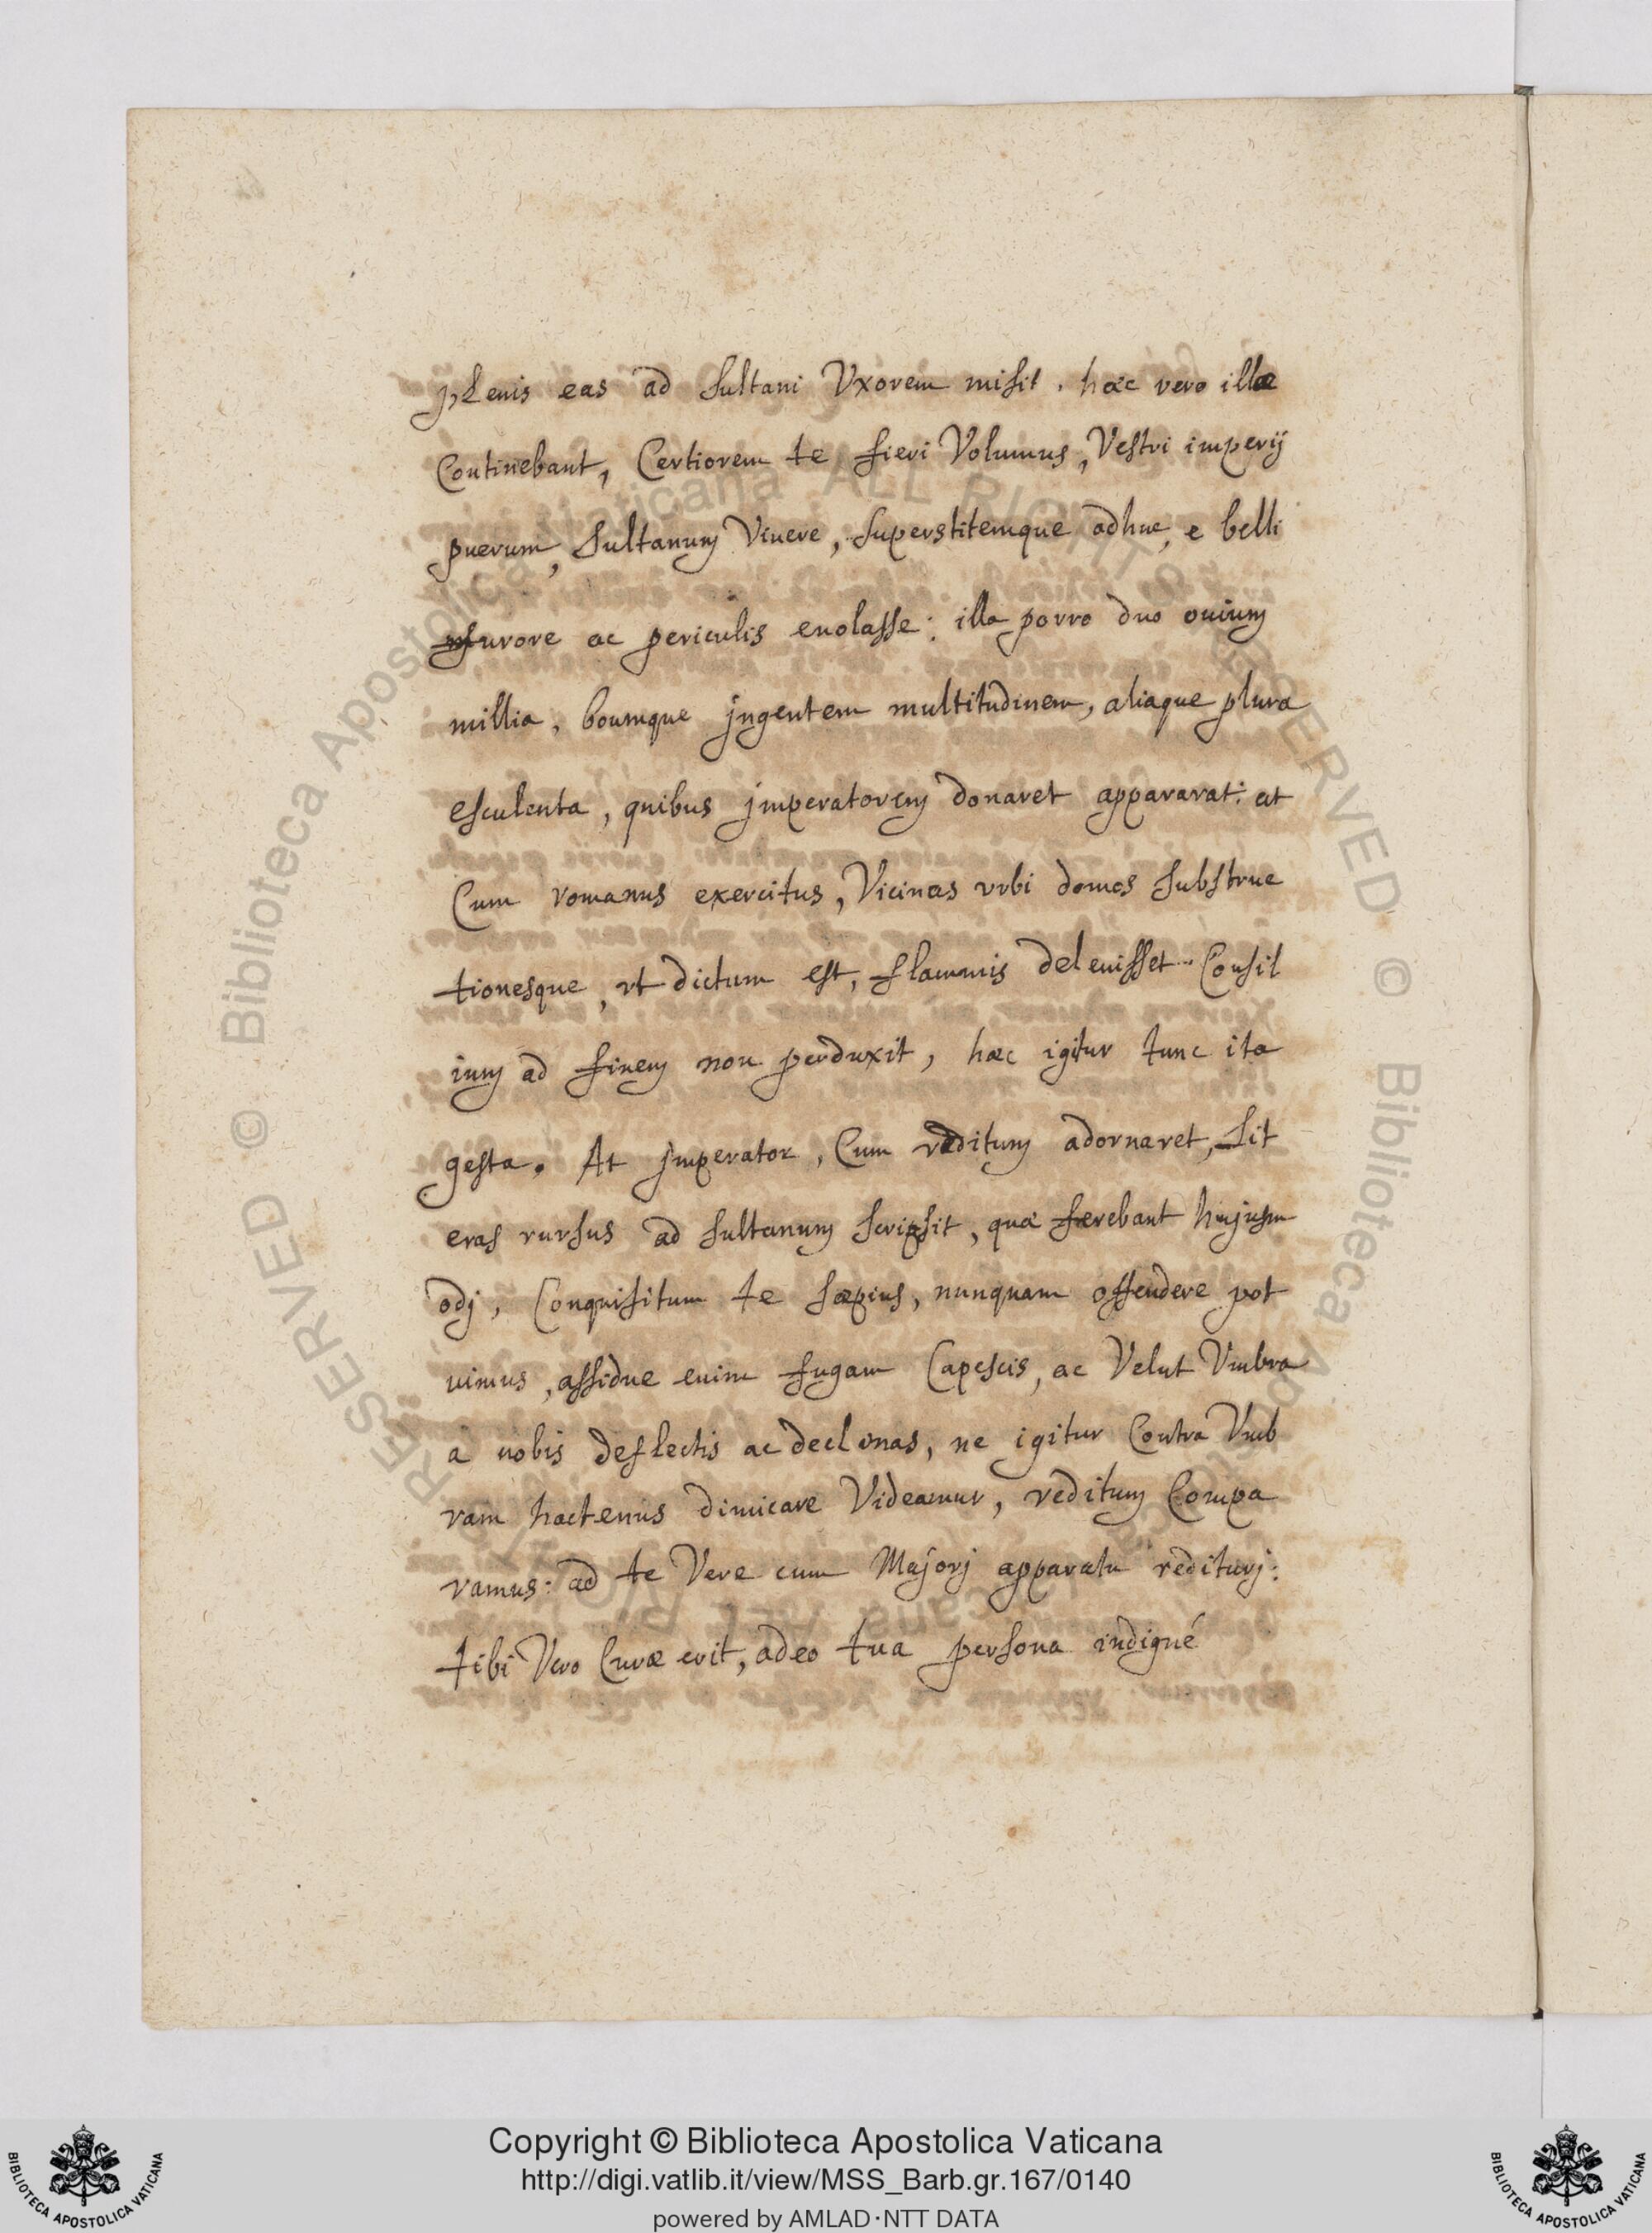 plenis eas ad sultani Vxorem misit. hæc vero illæ
Continebant, Certiorem te fieri Volumus, Vestri imperij
puerum, sultanum Viuere, superstitemque adhuc, e belli
furore ac periculis euolasse: illa porro duo ouium
millia, boumque jngentem multitudinem, aliaque plura
esculenta, quibus jmperatorem donaret appararat: at
Cum romanus exercitus, Vicinas vrbi domos substruc
tionesque, vt dictum est, flammis deleuisset Consil
ium ad finem non perduxit, hæc igitur tunc ita
gesta. At jmperator, Cum reditum adornaret, Lit
eras rursus ad sultanum scripsit, quæ ferebant hujusm
odj, Conquisitum te sæpius, nunquam offendere pot
uimus, assidue enim fugam Capescis, ac Velut Vmbra
a nobis deflectis ac declinas, ne igitur Contra Vmb
ram hactenus dimicare Videamur, reditum Compa
ramus: ad te Vere cum Majorj apparatu rediturj:
tibi Vero Curæ erit, adeo tua persona indigné
© Biblioteca Apostolica Vaticana ALL RIGHTS RESERVED
© Biblioteca Apostolica Vaticana ALL RIGHTS RESERVED
Copyright © Biblioteca Apostolica Vaticana
http://digi.vatlib.it/view/MSS_Barb.gr.167/0140
powered by AMLAD·NTT DATA
BIBLIOTECA APOSTOLICA VATICANA
BIBLIOTECA APOSTOLICA VATICANA